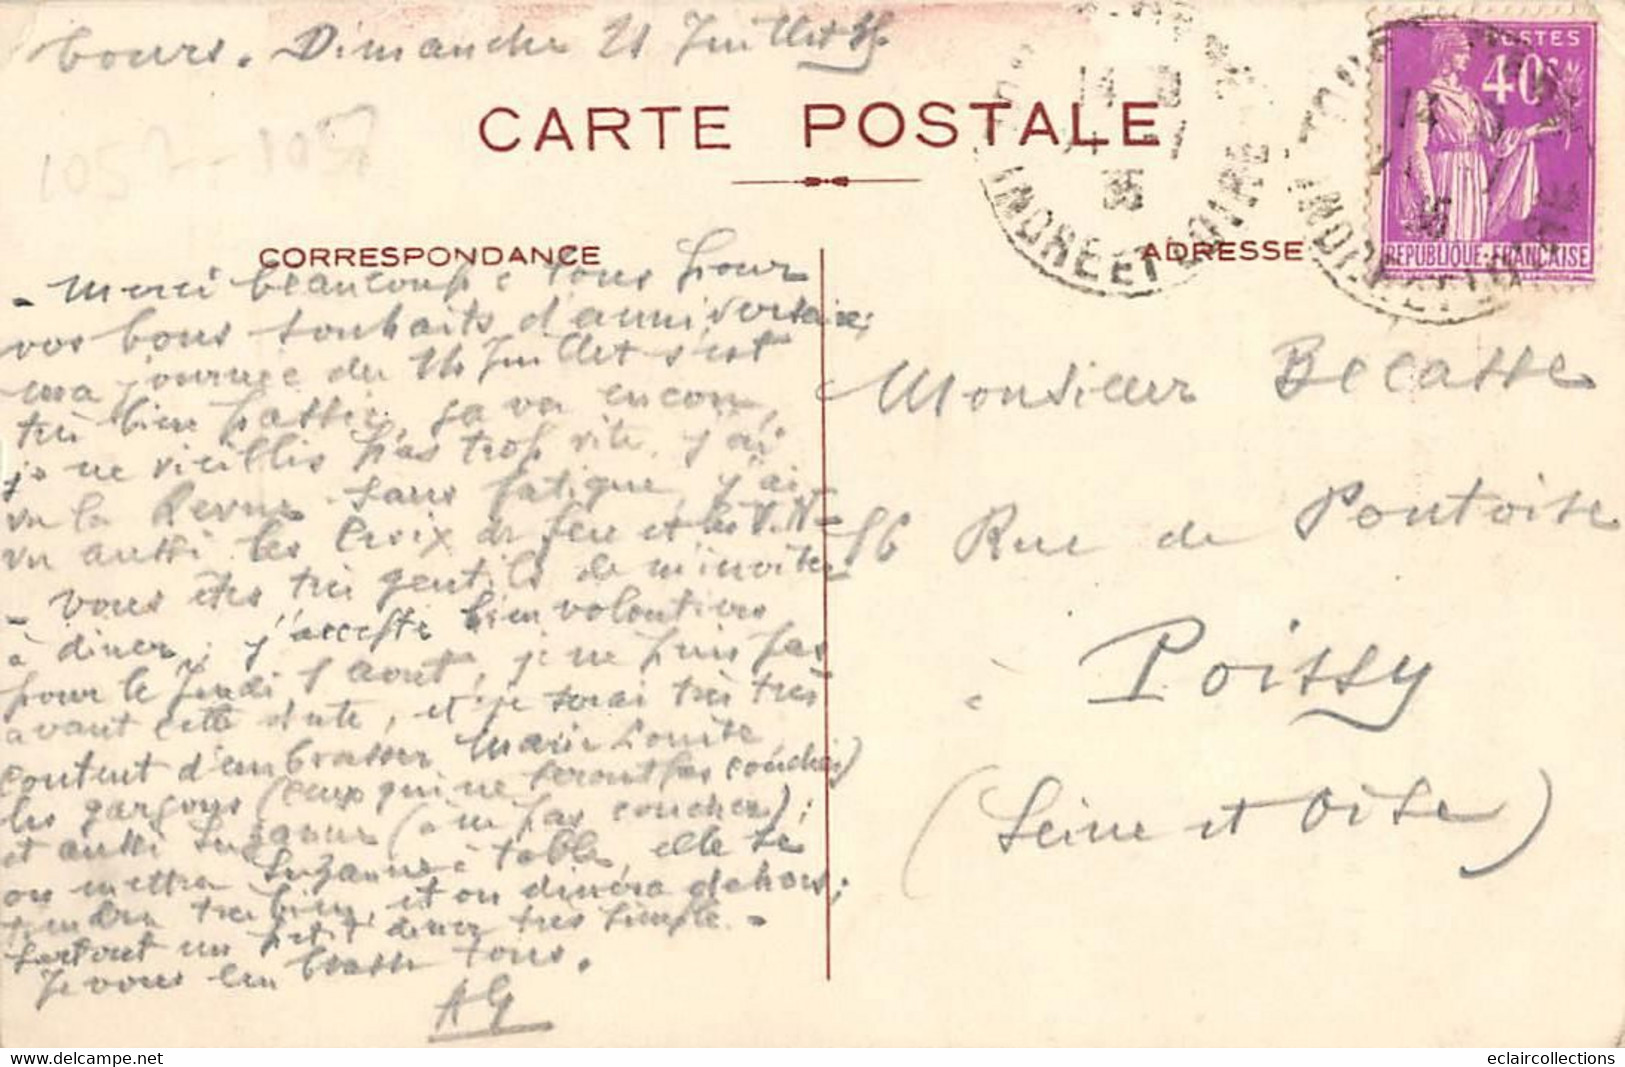 Tours. Dimanche 21 Juillet 35
CARTE POSTALE
1057-1057
CORRESPONDANCE
ADRESSE
POSTES
40c
REPUBLIQUE-FRANÇAISE
14
35
INDRE ET LOIRE
TOURS
14
35
INDRE ET LOIRE
- Merci beaucoup à tous pour
vos bons souhaits d'anniversaire;
ma journée du 14 Juillet s'est
très bien passée, ça va encore,
je ne vieillis pas trop vite, j'ai
vu la Revue sans fatigue, j'ai
vu aussi les Croix de feu et les V.N-
- Vous êtes très gentils de m'inviter
à diner, j'accepte bien volontiers
pour le Jeudi 1 août, je ne puis pas
avant cette date, et je serai très très
content d'embrasser Marie Louise
les garçons (ceux qui ne seront pas couchés)
et aussi Suzanne (à ne pas coucher);
on mettra Suzanne à table, elle se
tiendra très bien, et on dinera dehors;
surtout un petit diner très simple. -
Je vous embrasse tous.
AG
Monsieur Becasse
86 Rue de Pontoise
à Poissy
(Seine et Oise)
eclaircollections